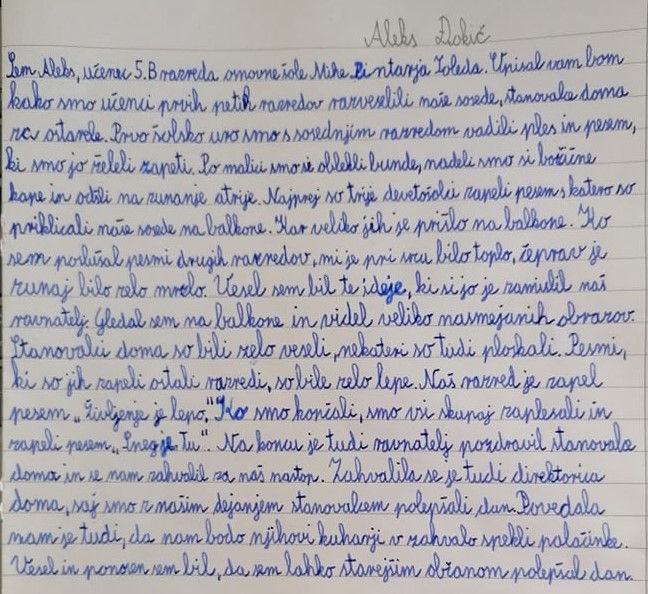 Aleks Đokić
Sem Aleks, učenec 5.B razreda osnovne šole Mihe Pintarja Toleda. Opisal vam bom
kako smo učenci prvih petih razredov razveselili naše sosede, stanovalce doma
za ostarele. Prvo šolsko uro smo s sosednjim razredom vadili ples in pesem,
ki smo jo želeli zapeti. Po malici smo si oblekli bunde, nadeli smo si božične
kape in odšli na zunanje atrije. Najprej so trije devetošolci zapeli pesem s katero so
priklicali naše sosede na balkone. Kar veliko jih je prišlo na balkone. Ko
sem poslušal pesmi drugih razredov, mi je pri srcu bilo toplo, čeprav je
zunaj bilo zelo mrzlo. Vesel sem bil te ideje, ki si jo je zamislil naš
ravnatelj. Gledal sem na balkone in videl veliko nasmejanih obrazov.
Stanovalci doma so bili zelo veseli, nekateri so tudi ploskali. Pesmi,
ki so jih zapeli ostali razredi, so bile zelo lepe. Naš razred je zapel
pesem „Življenje je lepo." Ko smo končali, smo vsi skupaj zaplesali in
zapeli pesem „Sneg je Tu". Na koncu je tudi ravnatelj pozdravil stanovalce
doma in se nam zahvalil za naš nastop. Zahvalila se je tudi direktorica
doma, saj smo z našim dejanjem stanovalcem polepšali dan. Povedala
nam je tudi, da nam bodo njihovi kuharji v zahvalo spekli palačinke.
Vesel in ponosen sem bil, da sem lahko starejšim občanom polepšal dan.